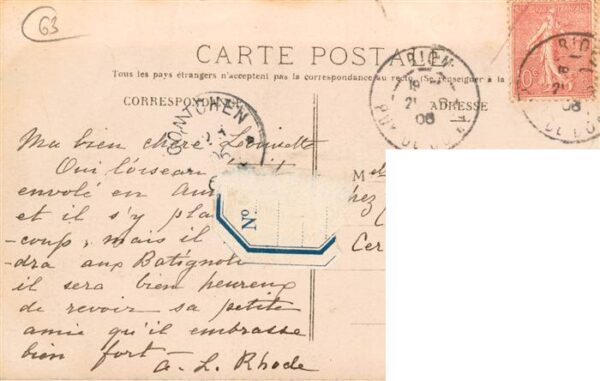 63
CARTE POSTA
Tous les pays étrangers n'acceptent pas la correspondance au recto. (Se renseigner à la
CORRESPON
ADRESSE
RIOM
08
PUY DE
RIOM
08
10c
Ma bien chère
Oui l'oiseau
envolé en
et il s'y pla
-coup, mais il
-dra aux Batignol
il sera bien heureux
de revoir sa petite
amie qu'il embrasse
bien fort
A. L. Rhode
No
Mel
hez
Cer